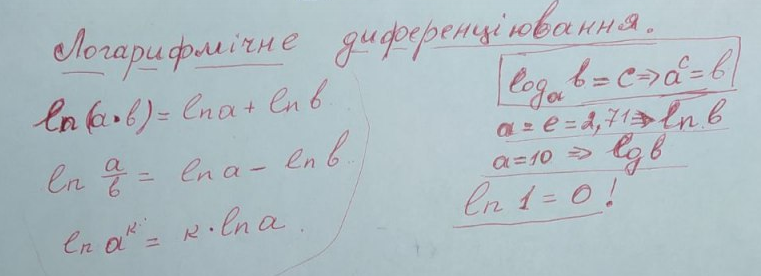 Логарифмічне диференціювання.
ln(a·b) = ln a + ln b
ln a/b = ln a - ln b
ln aᵏ = к·ln a.
logₐ b = c ⇒ aᶜ = b
a = e = 2,71 ⇒ ln b
a = 10 ⇒ lg b
ln 1 = 0!